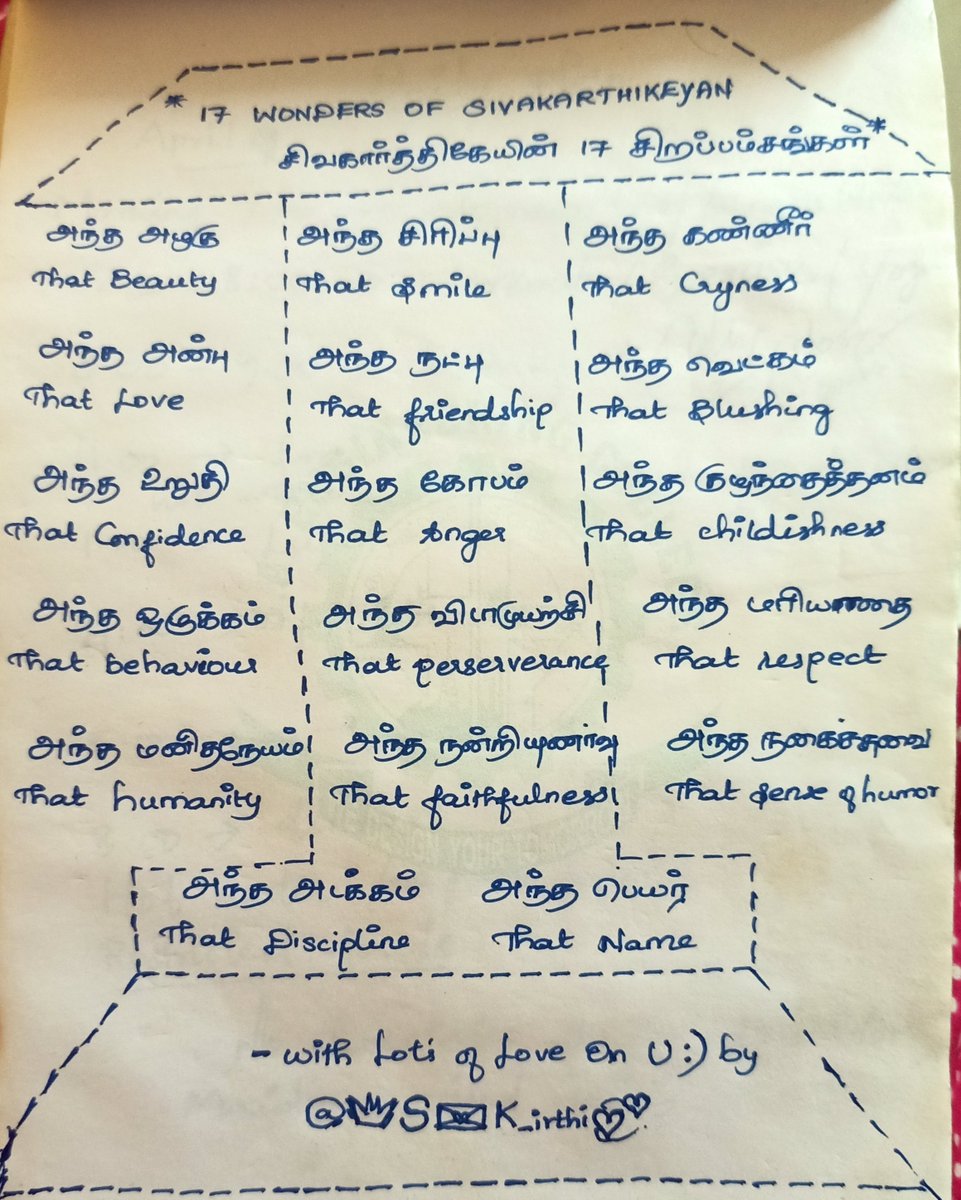 * 17 WONDERS OF SIVAKARTHIKEYAN
சிவகார்த்திகேயின் 17 சிறப்பம்சங்கள் *
அந்த அழகு அந்த சிரிப்பு அந்த கண்ணீர்
That Beauty That Smile That Cryness
அந்த அன்பு அந்த நட்பு அந்த வெட்கம்
That Love That friendship That Blushing
அந்த உறுதி அந்த கோபம் அந்த குழந்தைத்தனம்
That Confidence That Anger That childishness
அந்த ஒழுக்கம் அந்த விடாமுயற்சி அந்த மரியாதை
That behaviour That perserverance That respect
அந்த மனிதநேயம் அந்த நன்றியுணர்வு அந்த நகைச்சுவை
That humanity That faithfulness That sense of humor
அந்த அடக்கம் அந்த பெயர்
That Discipline That Name
- with Lots of Love On U :) by
@👑S✉K_irthi💕